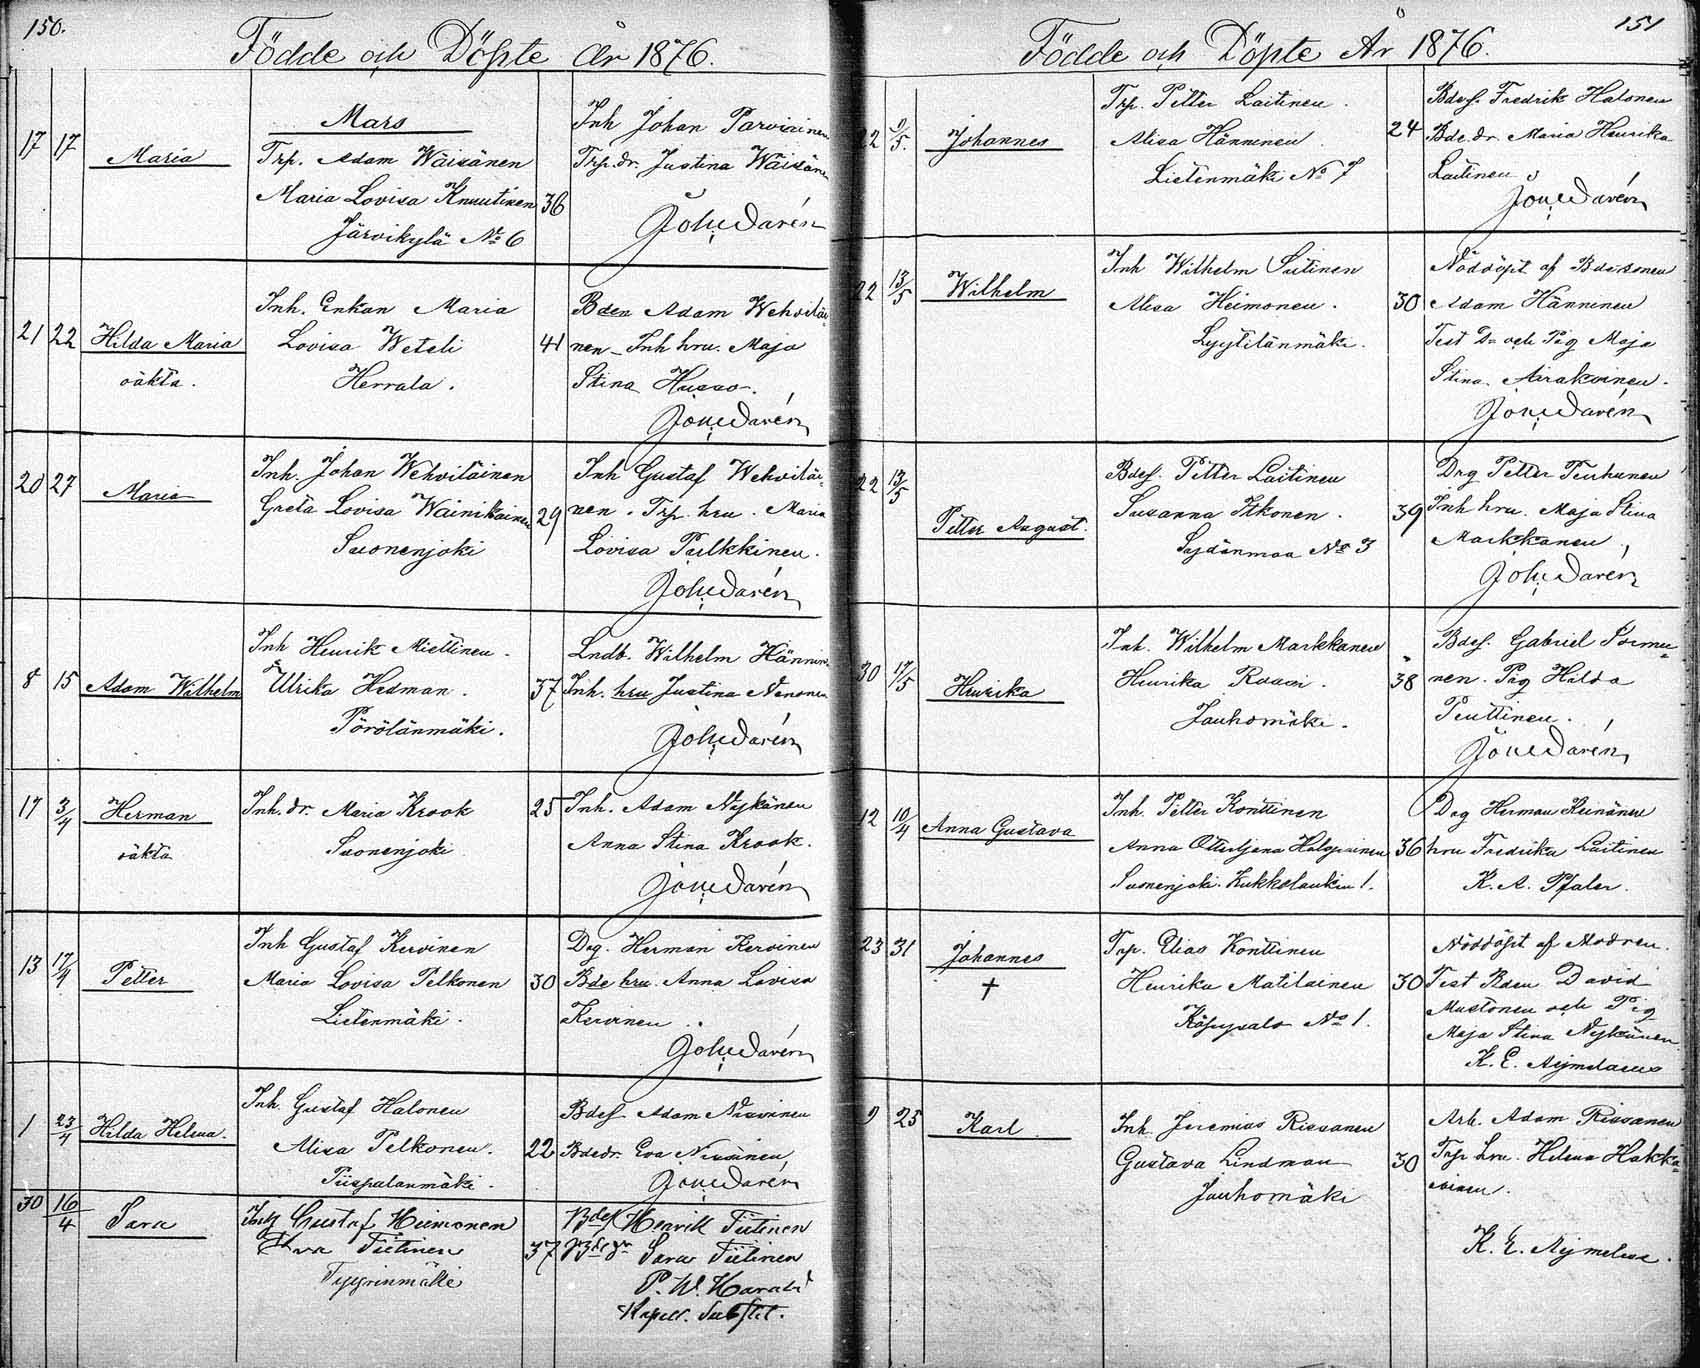 150.
Födde och Döpte År 1876.
Mars
17 17 Maria
Trp. Adam Wäisänen
Maria Lovisa Knuutinen 36
Järvikylä No 6
Inh Johan Parviainen
Trp. dr. Justina Wäisänen
Joh. Davén
21 22 Hilda Maria
oäkta.
Inh. Enkan Maria
Lovisa Weteli 41
Herrala.
Bden Adam Wehviläi-
nen - Inh hru. Maja
Stina Husso.
Joh. Davén
20 27 Maria
Inh. Johan Wehviläinen
Greta Lovisa Wainikainen 29
Suonenjoki
Inh Gustaf Wehviläi-
nen. Trp. hru. Maria
Lovisa Pulkkinen.
Joh. Davén
8 15 Adam Wilhelm
Inh Henrik Miettinen.
Ulrika Hedman. 37
Pörölänmäki.
Lndb. Wilhelm Hänninen
Inh. hru Justina Nenonen
Joh. Davén
17 3/4 Herman
oäkta
Inh. dr. Maria Krook 25
Suonenjoki
Inh. Adam Nykänen
Anna Stina Krook.
Joh. Davén
13 17/4 Petter
Inh Gustaf Kervinen
Maria Lovisa Pelkonen 30
Lietenmäki.
Drg. Herman Kervinen
Bde hru. Anna Lovisa
Kervinen
Joh. Davén
1 23/4 Hilda Helena.
Inh. Gustaf Halonen
Alisa Pelkonen. 22
Piispalanmäki.
Bdes. Adam Nissinen
Bdedr. Eva Nissinen
Joh. Davén
30 16/4 Sara
Inh Gustaf Heimonen
Eva Tiitinen 37
Tyyrinmäki
Bdes Henrik Tiitinen
Sara Tiitinen
P. W.
Kapell. Subst.
151
Födde och Döpte År 1876.
22 9/5 Johannes
Trp. Petter Laitinen.
Alisa Hänninen 24
Lietenmäki No 7
Bdes. Fredrik Halonen
Bde. dr. Maria Henrika
Laitinen
Joh. Davén
22 13/5 Wilhelm
Inh Wilhelm Sutinen
Alisa Heimonen. 30
Lyytilänmäki.
Nöddöpt af Bdesonen
Adam Hänninen
Test Dn och Pig Maja
Stina Airaksinen.
Joh. Davén
22 13/5 Petter August.
Bdes. Petter Laitinen
Susanna Itkonen. 39
No 3
Drg Petter Teuhunen
Inh hru. Maja Stina
Markkanen
Joh. Davén
30 17/5 Henrika
Inh. Wilhelm Markkanen
Henrika Rossi. 38
Jauhomäki.
Bdes. Gabriel
nen. Pig Hilda
Puttinen.
Joh. Davén
12 10/4 Anna Gustava
Inh. Petter Konttinen
Anna Ottiljana Halopainen 36
Suonenjoki. 1.
Drg Herman Keinänen
hru Fredrika Laitinen
K. A. Pfaler.
23 31 Johannes
†
Trp. Elias Konttinen
Henrika Matilainen 30
No 1.
Nöddöpt af Modren.
Test Bden David
Mustonen och Pig
Maja Stina Nykänen
K. E. Nymalm
9 25 Karl
Inh. Jeremias Rissanen
Gustava Lindman 30
Jauhomäki
Arb. Adam Rissanen
Trp hru. Helena Hakka-
rainen.
K. E.